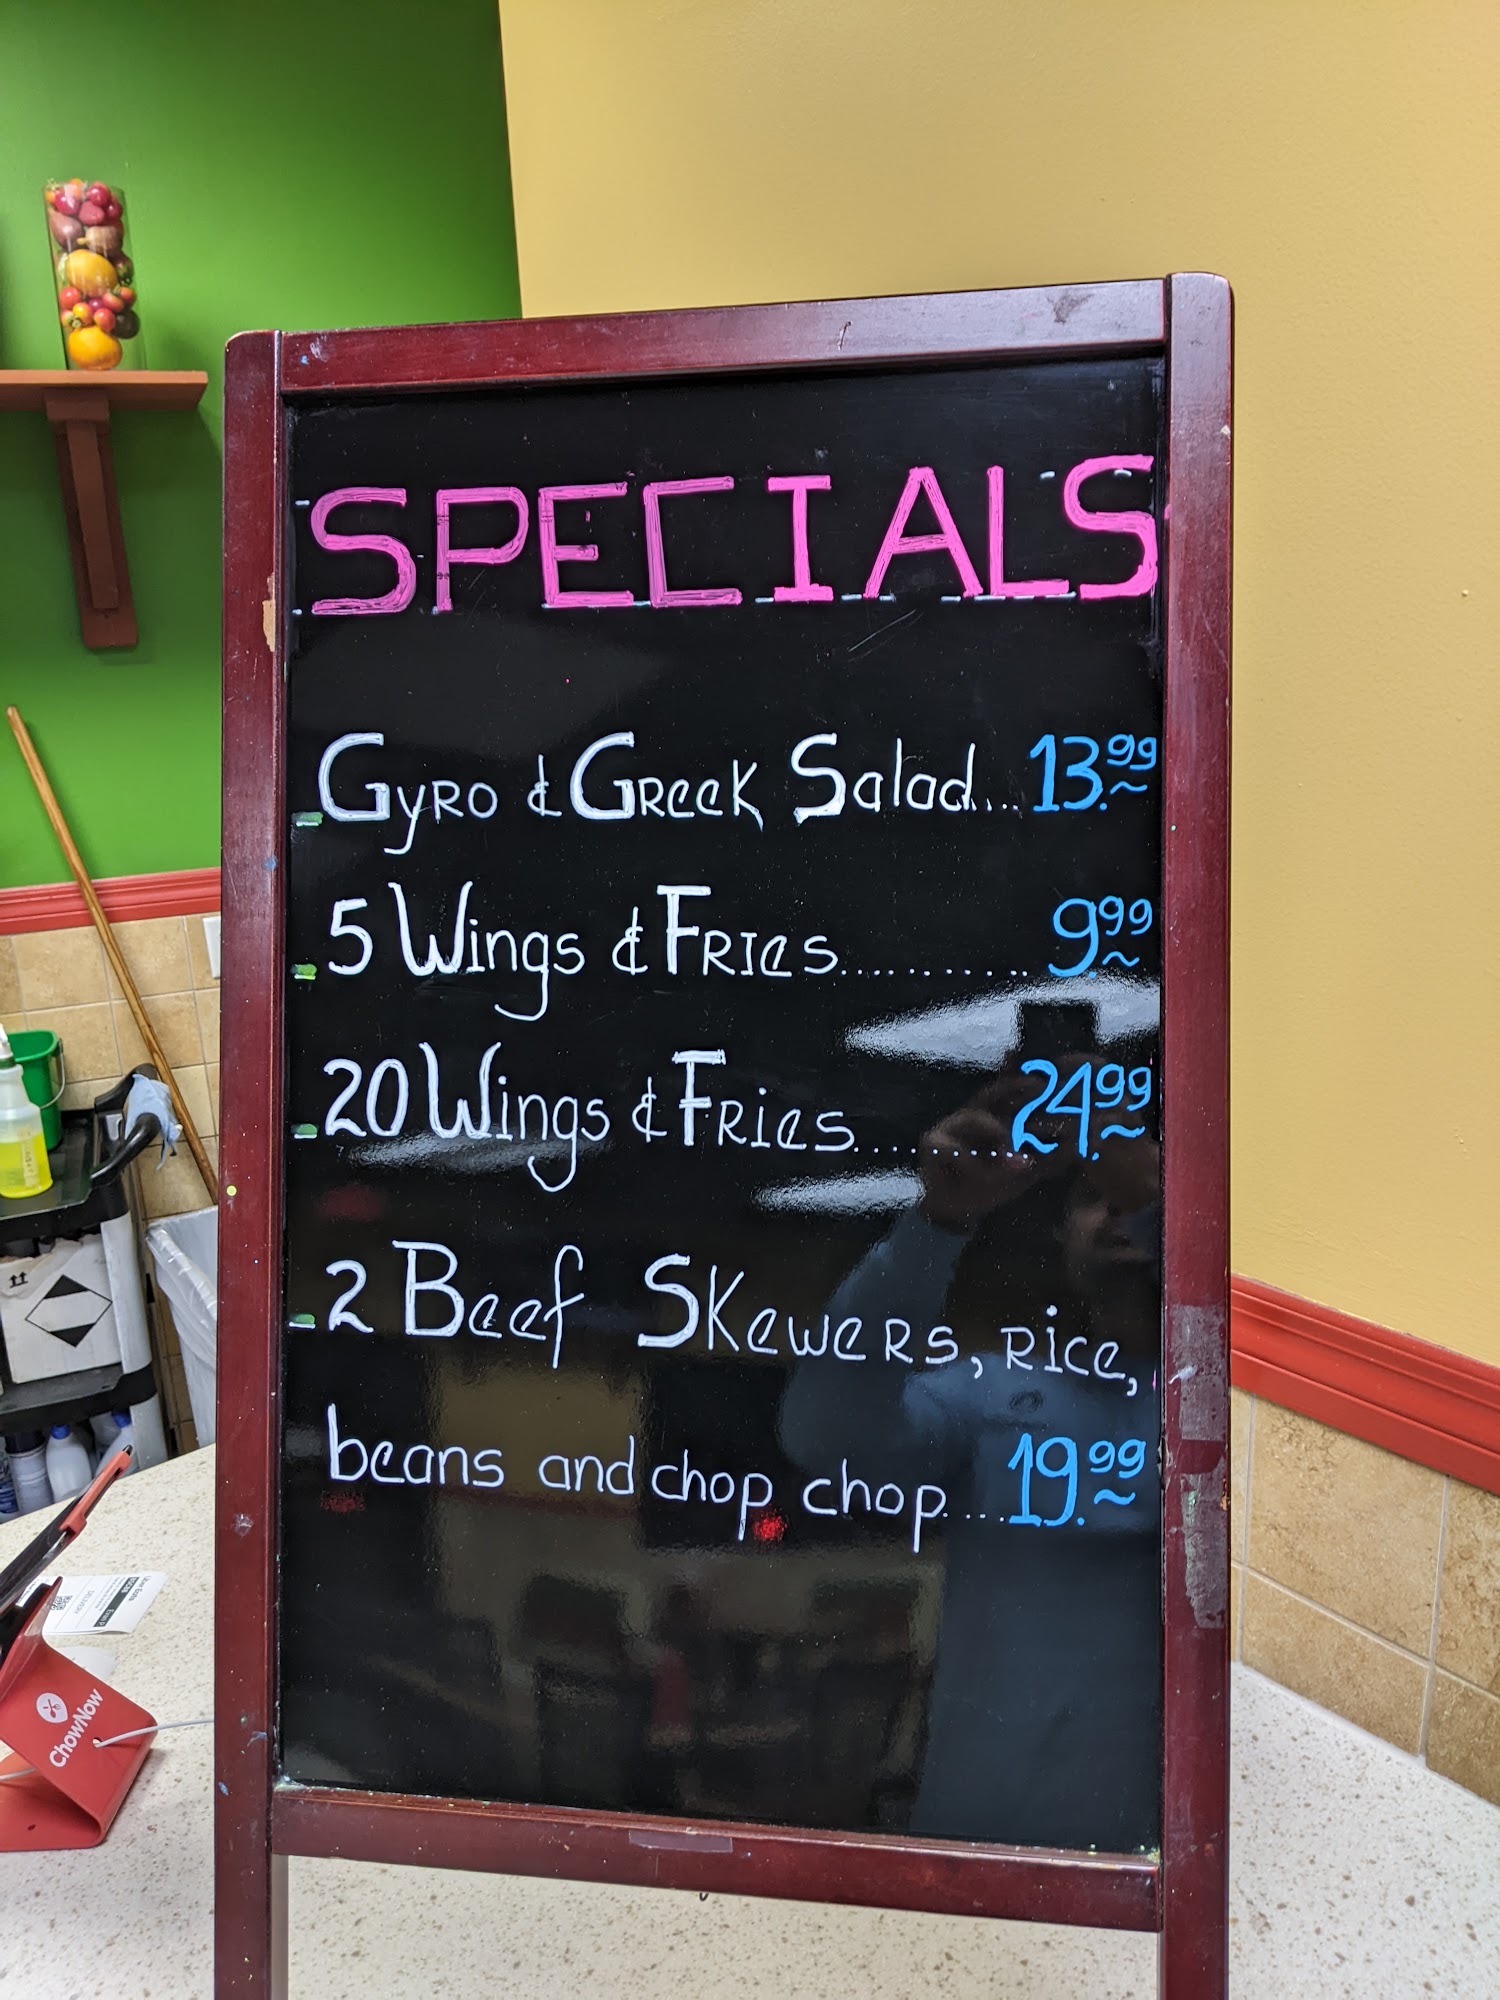 SPECIALS
Gyro & Greek Salad... 13.99
5 Wings & Fries........... 9.99
20 Wings & Fries........... 24.99
2 Beef Skewers, rice,
beans and chop chop.... 19.99
ChowNow
Uber Eats
DELIVERY